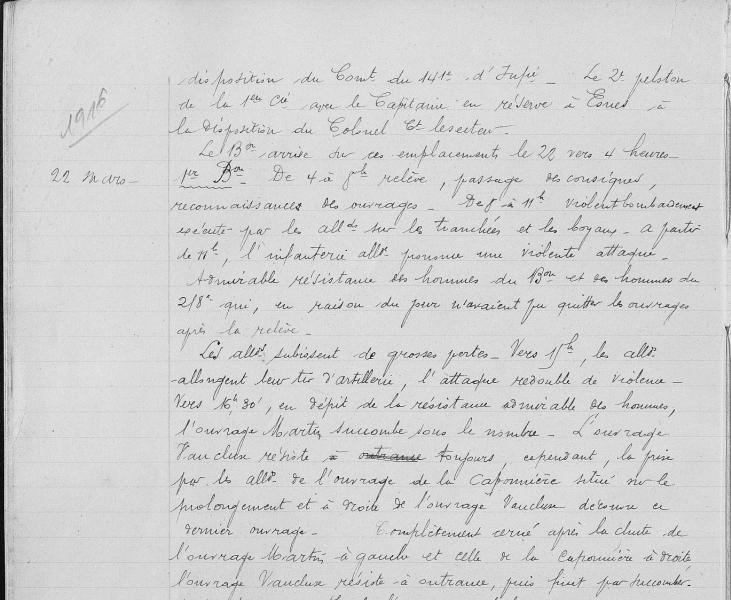 disposition du Comt du 141e d'Infie _ Le 2e peloton
de la 1ere Cie avec le Capitaine en réserve à Esnes à
la Disposition du Colonel Ct le secteur _
1916
Le Bon arrive sur ces emplacements le 22 vers 4 heures _
22 Mars _
1er Bon De 4 à 8h relève, passage des consignes,
reconnaissances des ouvrages _ De 8 à 11h violent bombardement
exécuté par les allds sur les tranchées et les boyaux _ A partir
de 11h, l'infanterie alle prononce une violente attaque _
Admirable résistance des hommes du Bon et des hommes du
218e qui, en raison du jour n'avaient pu quitter les ouvrages
après la relève _
Les allds subissent de grosses pertes _ Vers 15h, les allds
allongent leur tir d'artillerie, l'attaque redouble de violence _
Vers 16h30', en dépit de la résistance admirable des hommes,
l'ouvrage Martin succombe sous le nombre _ L'ouvrage
Vaucluse résiste à outrance toujours, cependant, la prise
par les allds de l'ouvrage de la Caponnière situé sur le
prolongement et à droite de l'ouvrage Vaucluse découvre ce
dernier ouvrage _ Complètement cerné après la chute de
l'ouvrage Martin à gauche et celle de la Caponnière à droite
l'ouvrage Vaucluse résiste à outrance, puis finit par succomber _